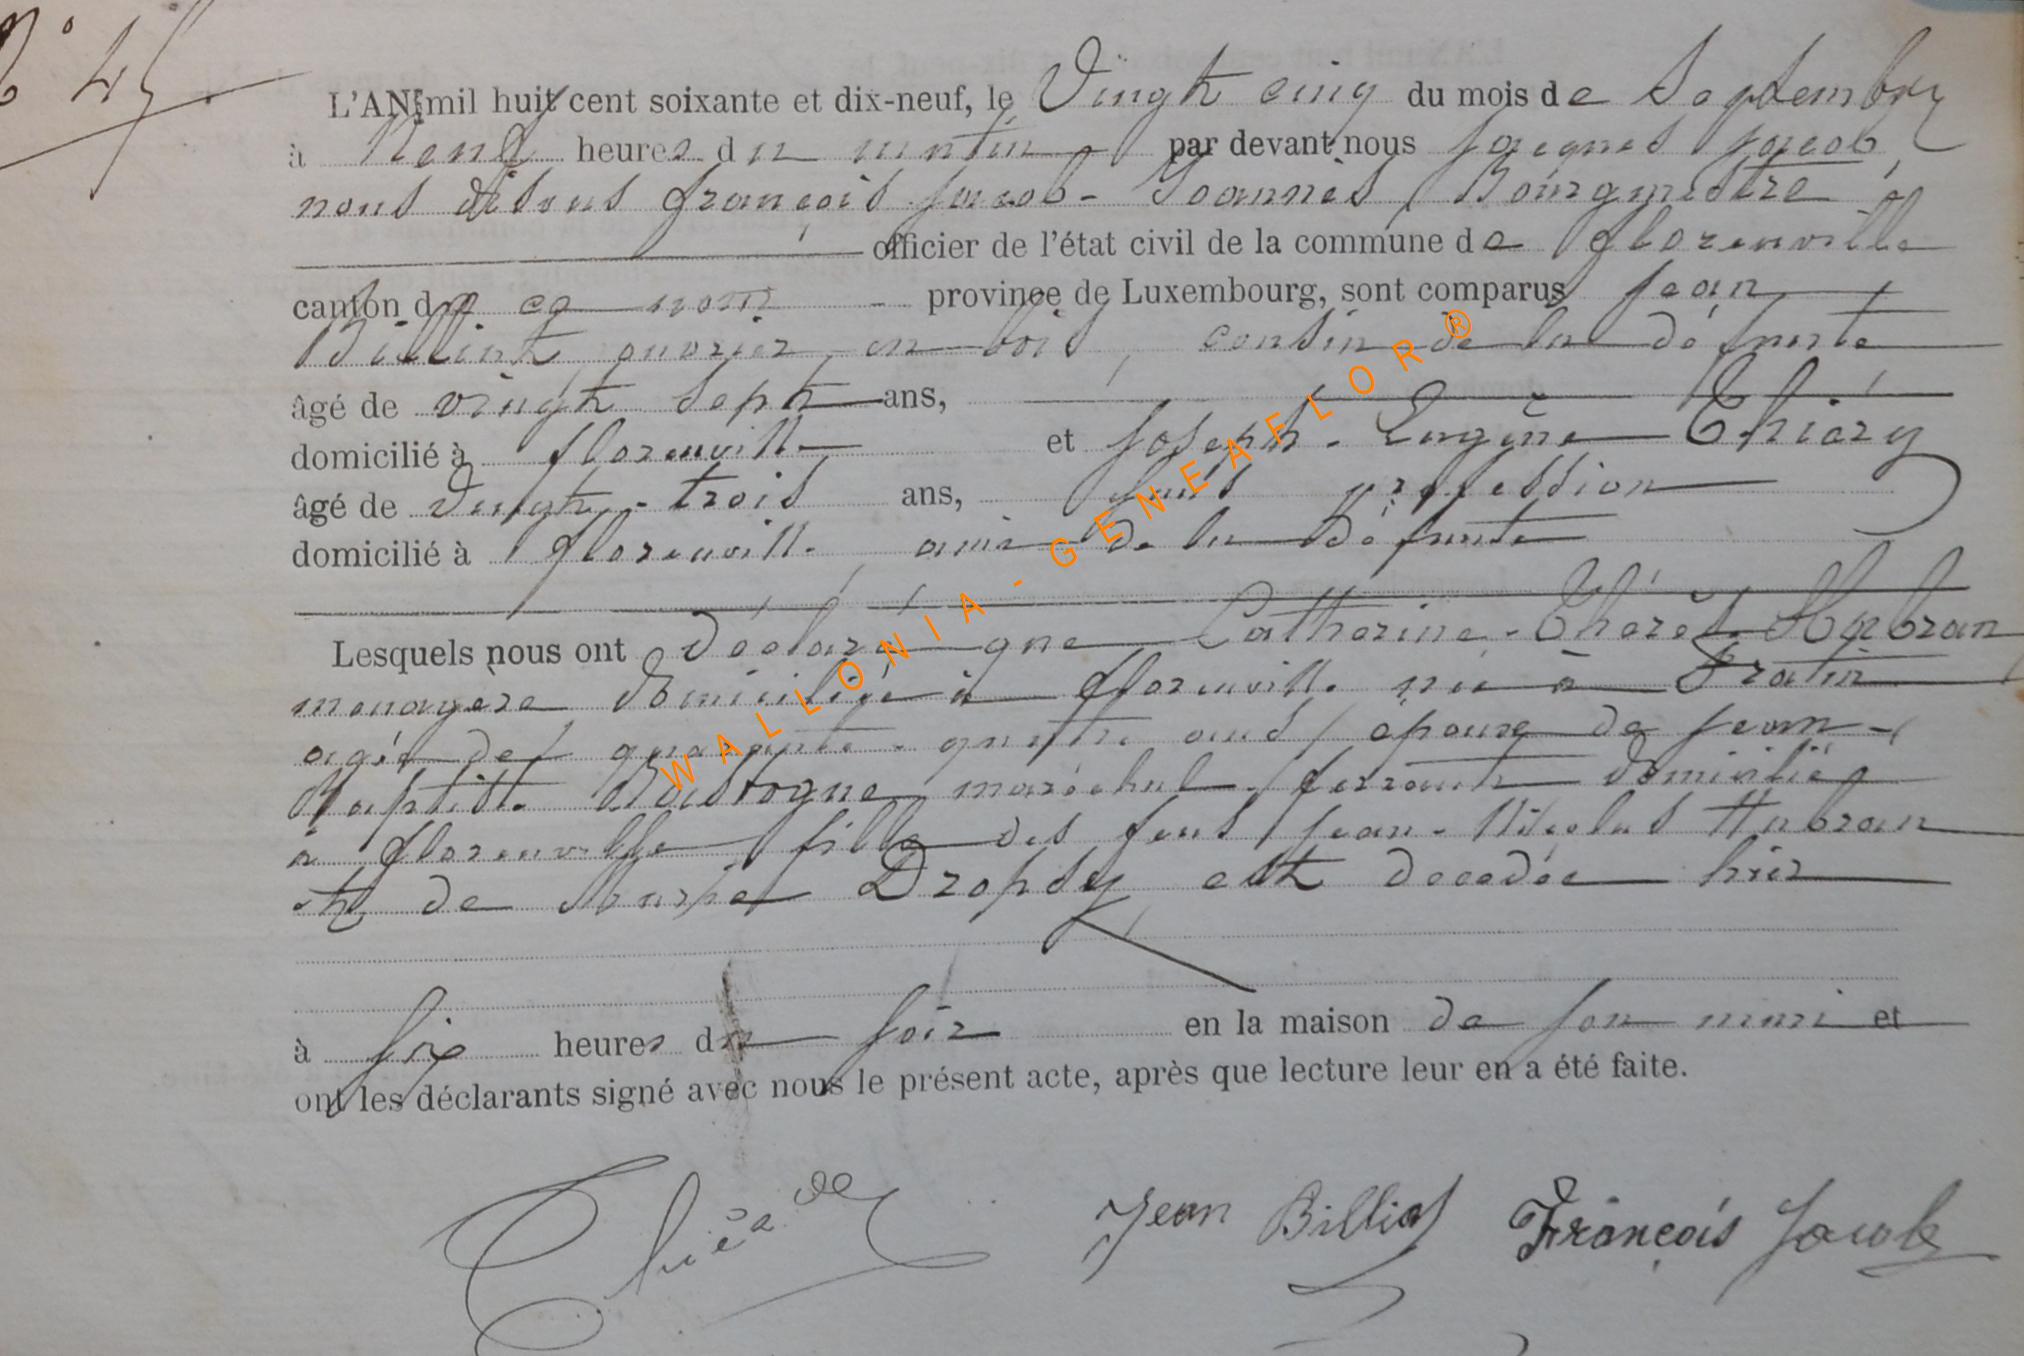 N° 45
L'AN mil huit cent soixante et dix-neuf, le Vingt cinq du mois de Septembre
à Neuf heures du matin par devant nous Jacques Jacob
nous disons François Jacob-Joannès, Bourgmestre
officier de l'état civil de la commune de Florenville
canton de ce nom province de Luxembourg, sont comparus Jean
Billiot ouvrier en bois, cousin de la défunte
âgé de vingt sept ans,
domicilié à Florenville et Joseph-Eugène Thiéry
âgé de vingt-trois ans, sans profession
domicilié à Florenville, ami de la défunte
Lesquels nous ont déclaré que Catherine-Thérèse Habran
menagère domiciliée à Florenville née à Fratin
agée de quarante-quatre ans, épouse de Jean-
Baptiste Bastogne maréchal-ferrant domicilié
à Florenville fille des feus Jean-Nicolas Habran
et de Marie Dropsy est decedée hier
à six heures du soir en la maison de son mari et
ont les déclarants signé avec nous le présent acte, après que lecture leur en a été faite.
Jean Billiot François Jacob
WALLONIA-GENEAFLOR®